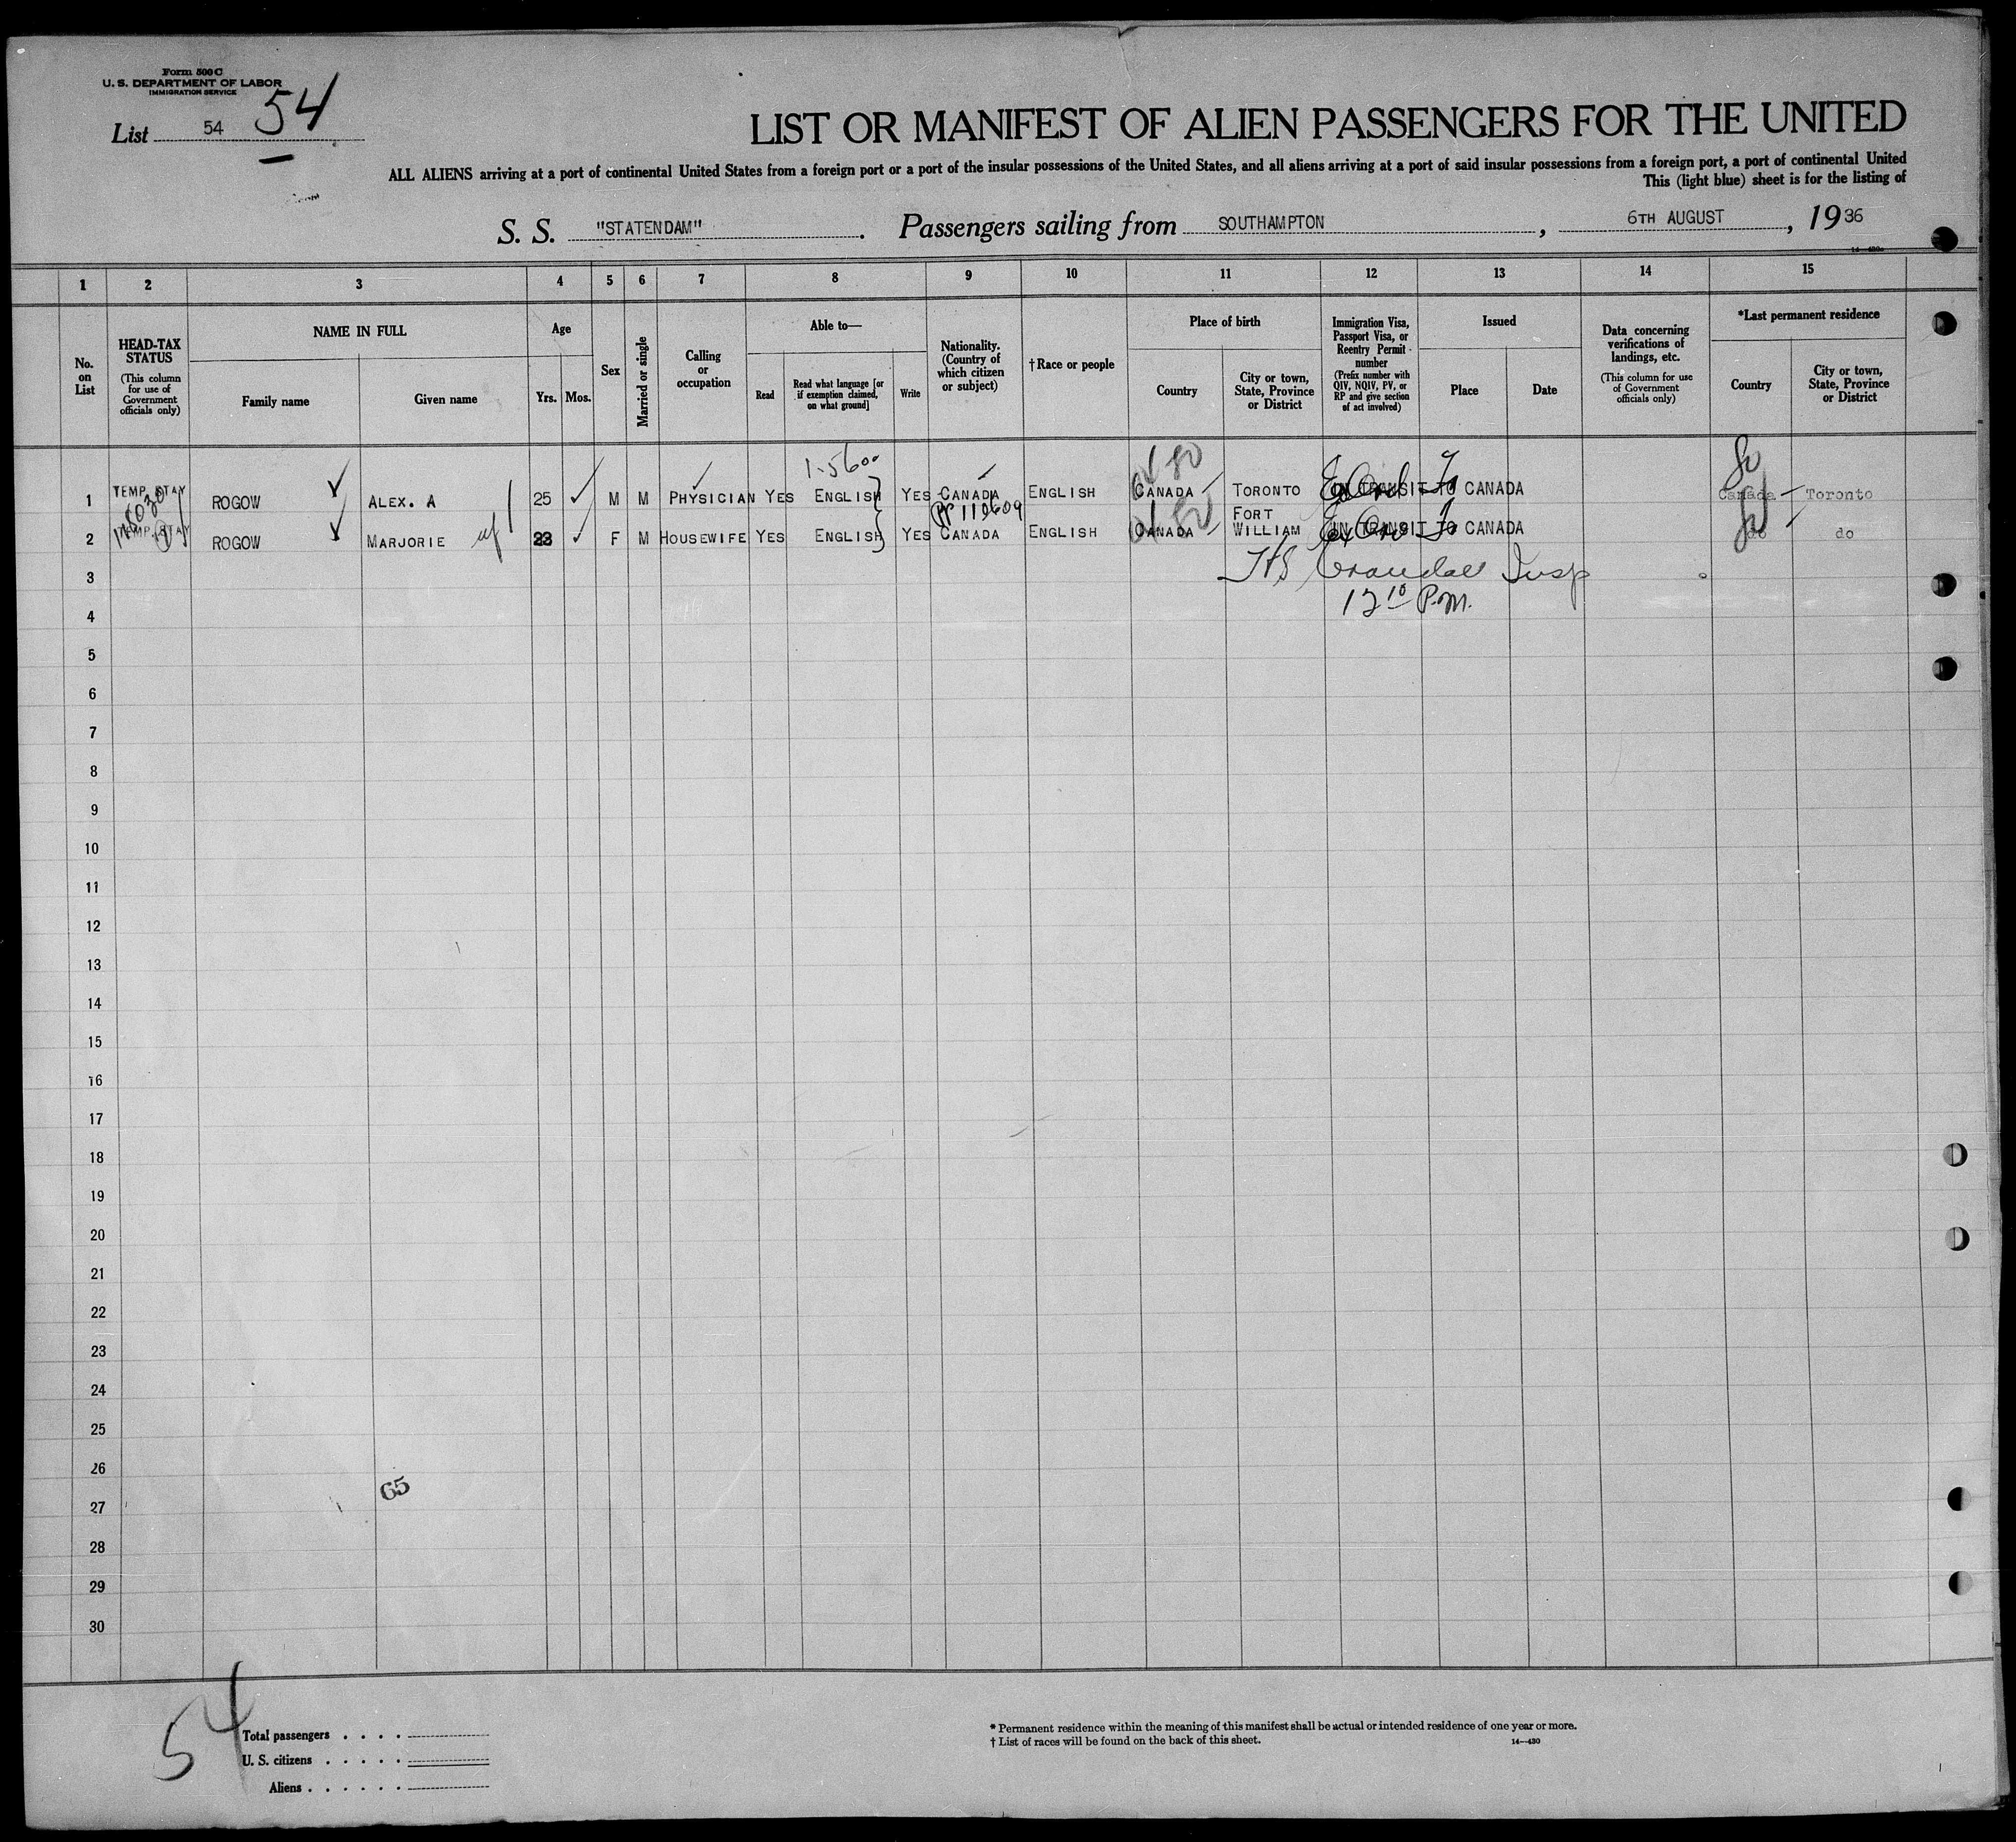 Form 500 C
U. S. DEPARTMENT OF LABOR
IMMIGRATION SERVICE
List 54 54
LIST OR MANIFEST OF ALIEN PASSENGERS FOR THE UNITED
ALL ALIENS arriving at a port of continental United States from a foreign port or a port of the insular possessions of the United States, and all aliens arriving at a port of said insular possessions from a foreign port, a port of continental United
This (light blue) sheet is for the listing of
S. S. "STATENDAM". Passengers sailing from SOUTHAMPTON, 6TH AUGUST, 1936
1 2 3 4 5 6 7 8 9 10 11 12 13 14 15
No. on List
HEAD-TAX STATUS
(This column for use of Government officials only)
NAME IN FULL
Family name
Given name
Age
Yrs. Mos.
Sex
Married or single
Calling or occupation
Able to—
Read
Read what language [or if exemption claimed, on what ground]
Write
Nationality. (Country of which citizen or subject)
†Race or people
Place of birth
Country
City or town, State, Province or District
Immigration Visa, Passport Visa, or Reentry Permit number
(Prefix number with QIV, NQIV, PV, or RP and give section of act involved)
Issued
Place
Date
Data concerning verifications of landings, etc.
(This column for use of Government officials only)
*Last permanent residence
Country
City or town, State, Province or District
1 TEMP. STAY ROGOW ALEX. A 25 M M PHYSICIAN YES ENGLISH YES CANADA ENGLISH CANADA TORONTO IN TRANSIT TO CANADA Canada Toronto
2 TEMP. STAY ROGOW MARJORIE wf 23 F M HOUSEWIFE YES ENGLISH YES CANADA ENGLISH CANADA FORT WILLIAM IN TRANSIT TO CANADA do do
3 Crandall Insp
4 12 10 P.M.
5
6
7
8
9
10
11
12
13
14
15
16
17
18
19
20
21
22
23
24
25
26
65
27
28
29
30
54
Total passengers . . . .
U. S. citizens . . . . .
Aliens . . . . . .
* Permanent residence within the meaning of this manifest shall be actual or intended residence of one year or more.
† List of races will be found on the back of this sheet. 14—430